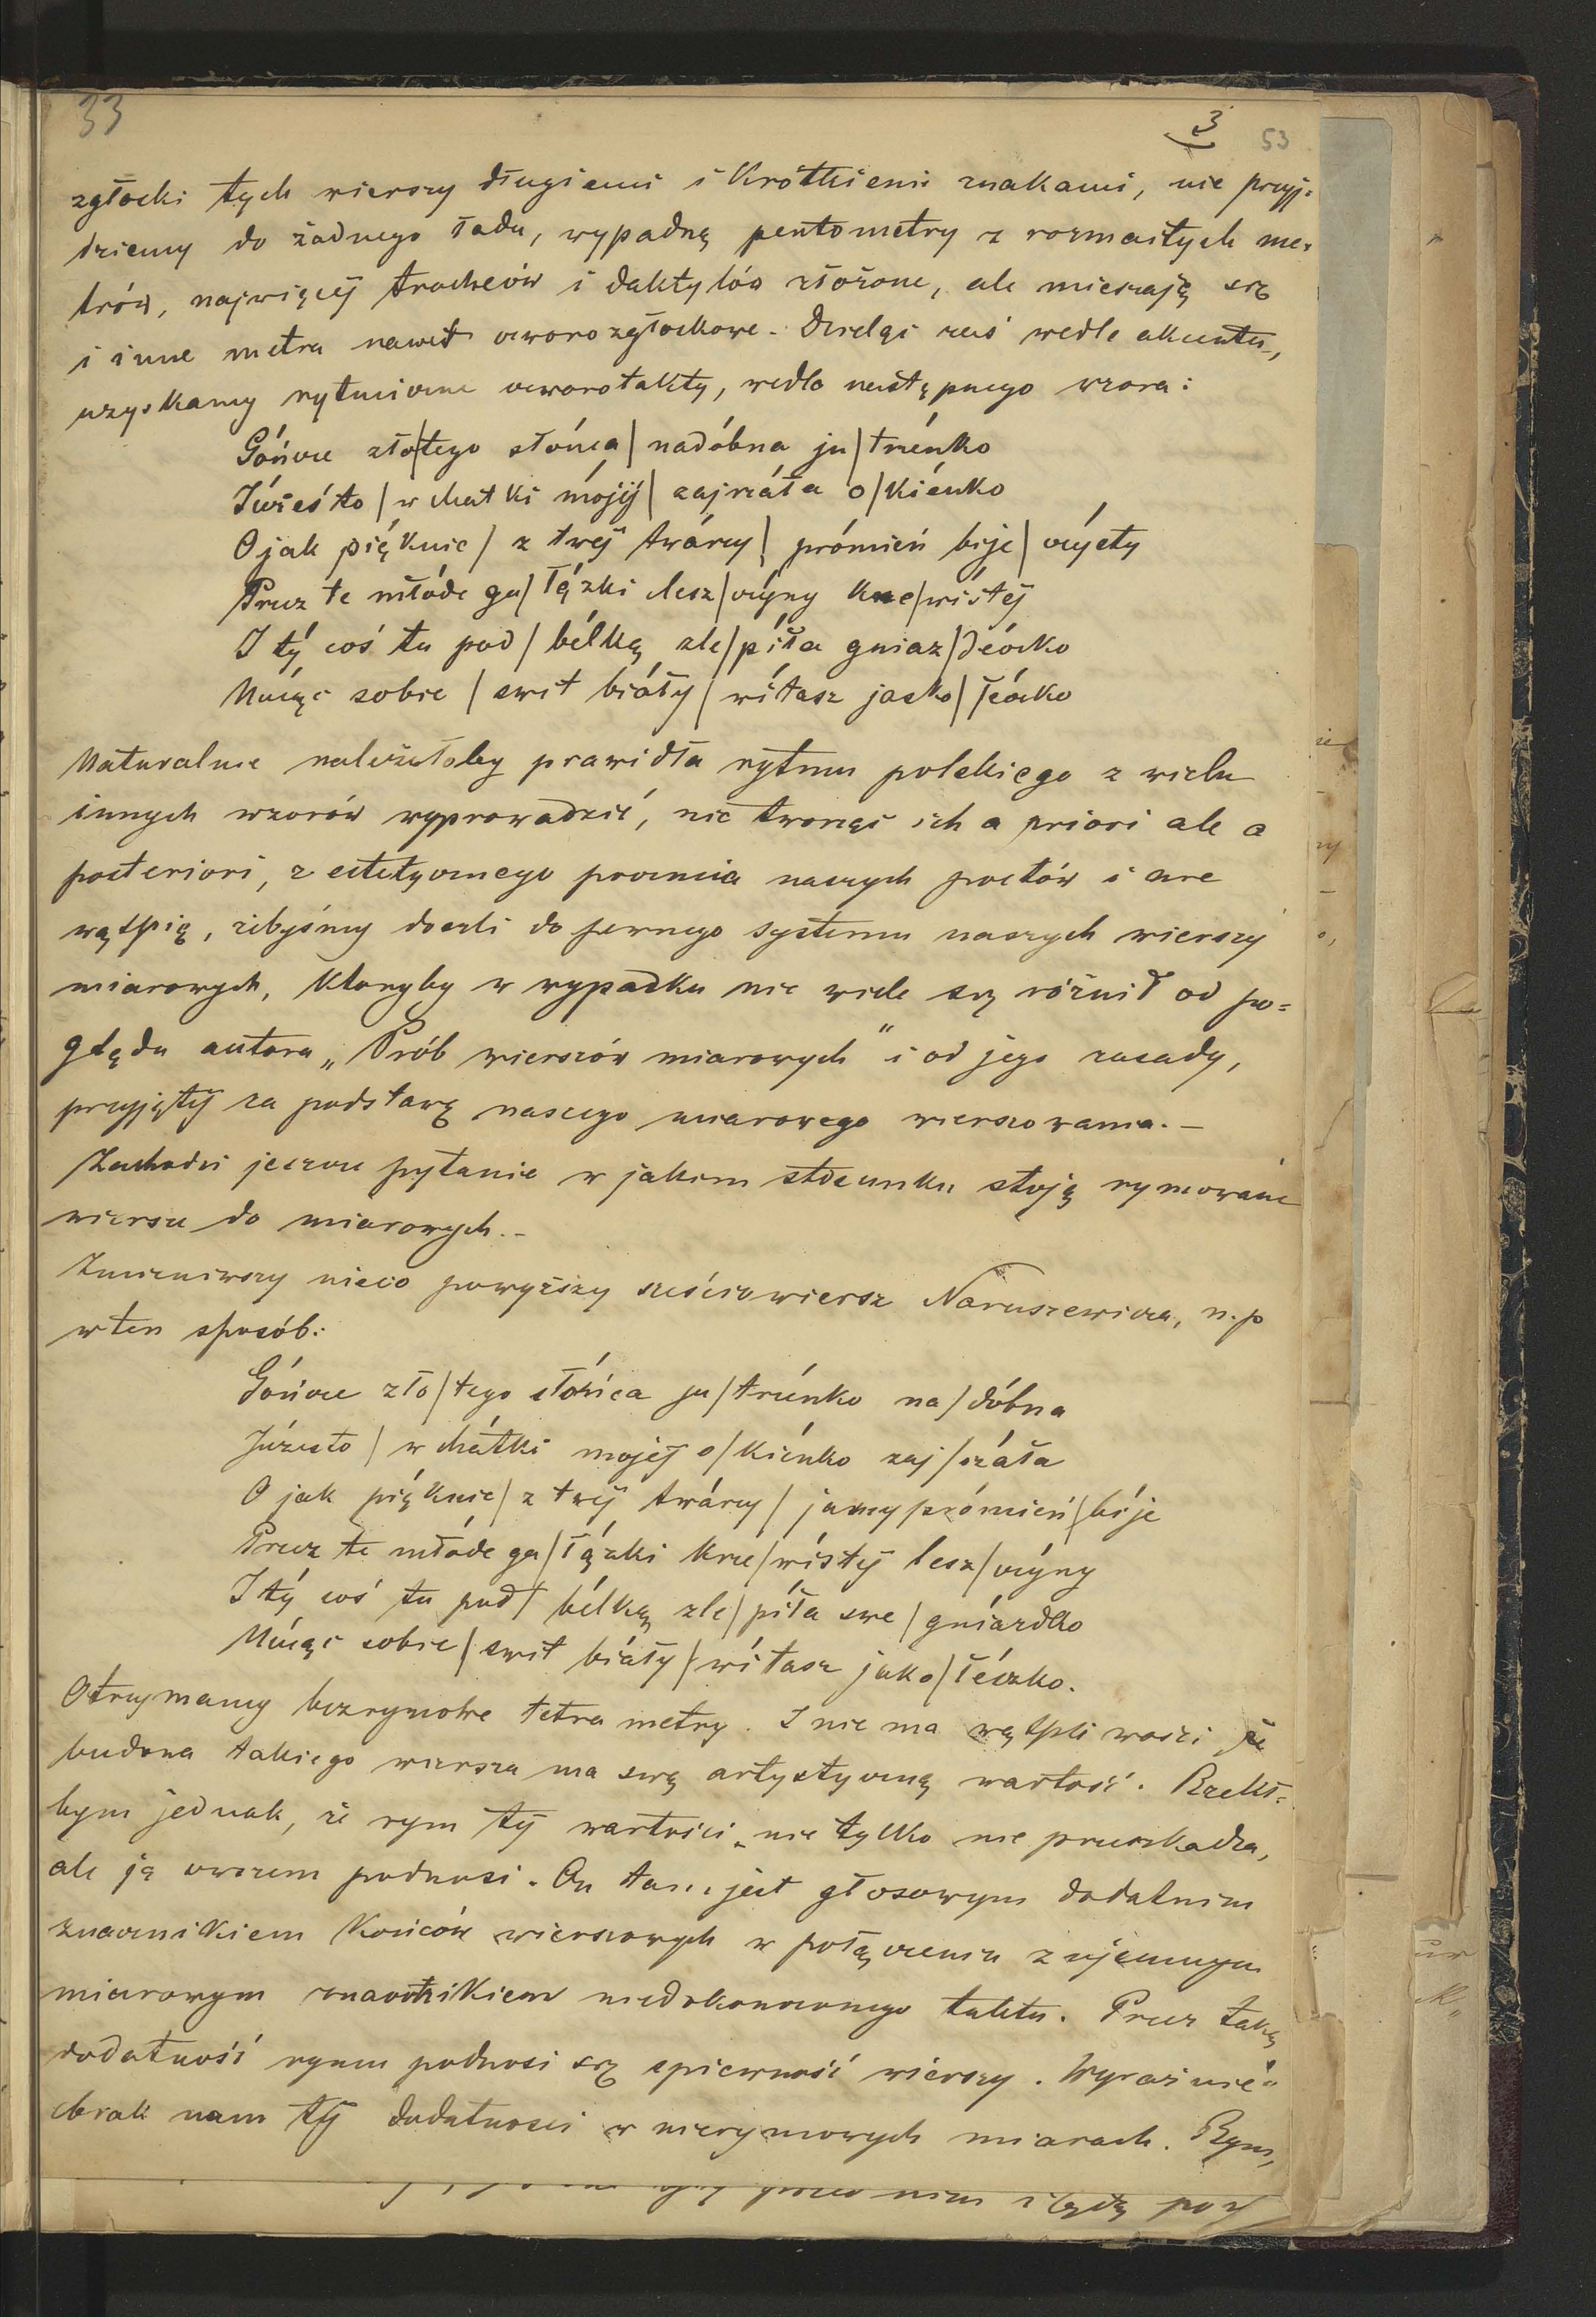 33
3 53
zgłoski tych wierszy długiemi i krótkiemi znakami, nie przyj-
dziemy do żadnego ładu, wypadną pentometry z rozmaitych me-
trów, najwięcej trocheów i daktylów złożone, ale mieszają się
i inne metra nawet czworozgłoskowe. Dzieląc zaś wedle akcentu,
uzyskamy rytmiczne czworotakty, wedle następnego wzoru:
Góncze zło/tego słońca/ nadóbna ju/trzénko
Józieś to / w chatki mójéj/ zajrzáła o/kiénko
O jak piéknie / z twej twárzy/ prómień bije/ czýsty
Przez te młóde ga/łązki lesz/czýny krze/wístéj
I tý coś tu pod / bélką zle/píła gniaz/déczko
Núcąc sobie / swit biáły / wítasz jasko/łéczko
Naturalnie należałoby prawidła rytmu polskiego z wielu
innych wzorów wyprowadzić, nie tworząc ich a priori ale a
posteriori, z estetycznego poczucia naszych poetów i nie
wątpię, żebyśmy doszli do pewnego systemu naszych wierszy
miarowych, któryby w wypadku nie wiele się różnił od po-
glądu autora „Prób wierszów miarowych" i od jego zasady,
przyjętéj za podstawę naszego miarowego wierszowania. –
Zachodzi jeszcze pytanie w jakim stosunku stoją rymowane
wiersze do miarowych. –
Zmieniwszy nieco powyższy sześciowiersz Naruszewicza, n.p
w ten sposób:
Góncze zło/tego słóńca ju/trzénko na/dóbna
Józesto / w chátki mojéj o/kiénko zaj/rzáła
O jak piéknie/ z twéj twárzy/ jasny prómień/bíje
Przez te młóde ga/łązki krze/wístéj lesz/czýny
I tý coś tu pod/ bélką zle/píła swe / gniázdko
Núcąc sobie / swit biáły / wítasz jako/łéczko.
Otrzymamy bezrymowe tetrametry. I nie ma wątpliwości że
budowa takiego wiersza ma swą artystyczną wartość. Rzekł-
bym jednak, że rym téj wartości nie tylko nie przeszkadza,
ale ją owszem podnosi. On tam jest głosowym dodatnim
znacznikiem końców wierszowych w połączeniu z ujemnym
miarowym znacznikiem niedokończonego taktu. Przez taką
dodatność rymu podnosi się śpiewność wierszy. Wyraźnie
brak nam téj dodatności w nierymowych miarach. Rym,